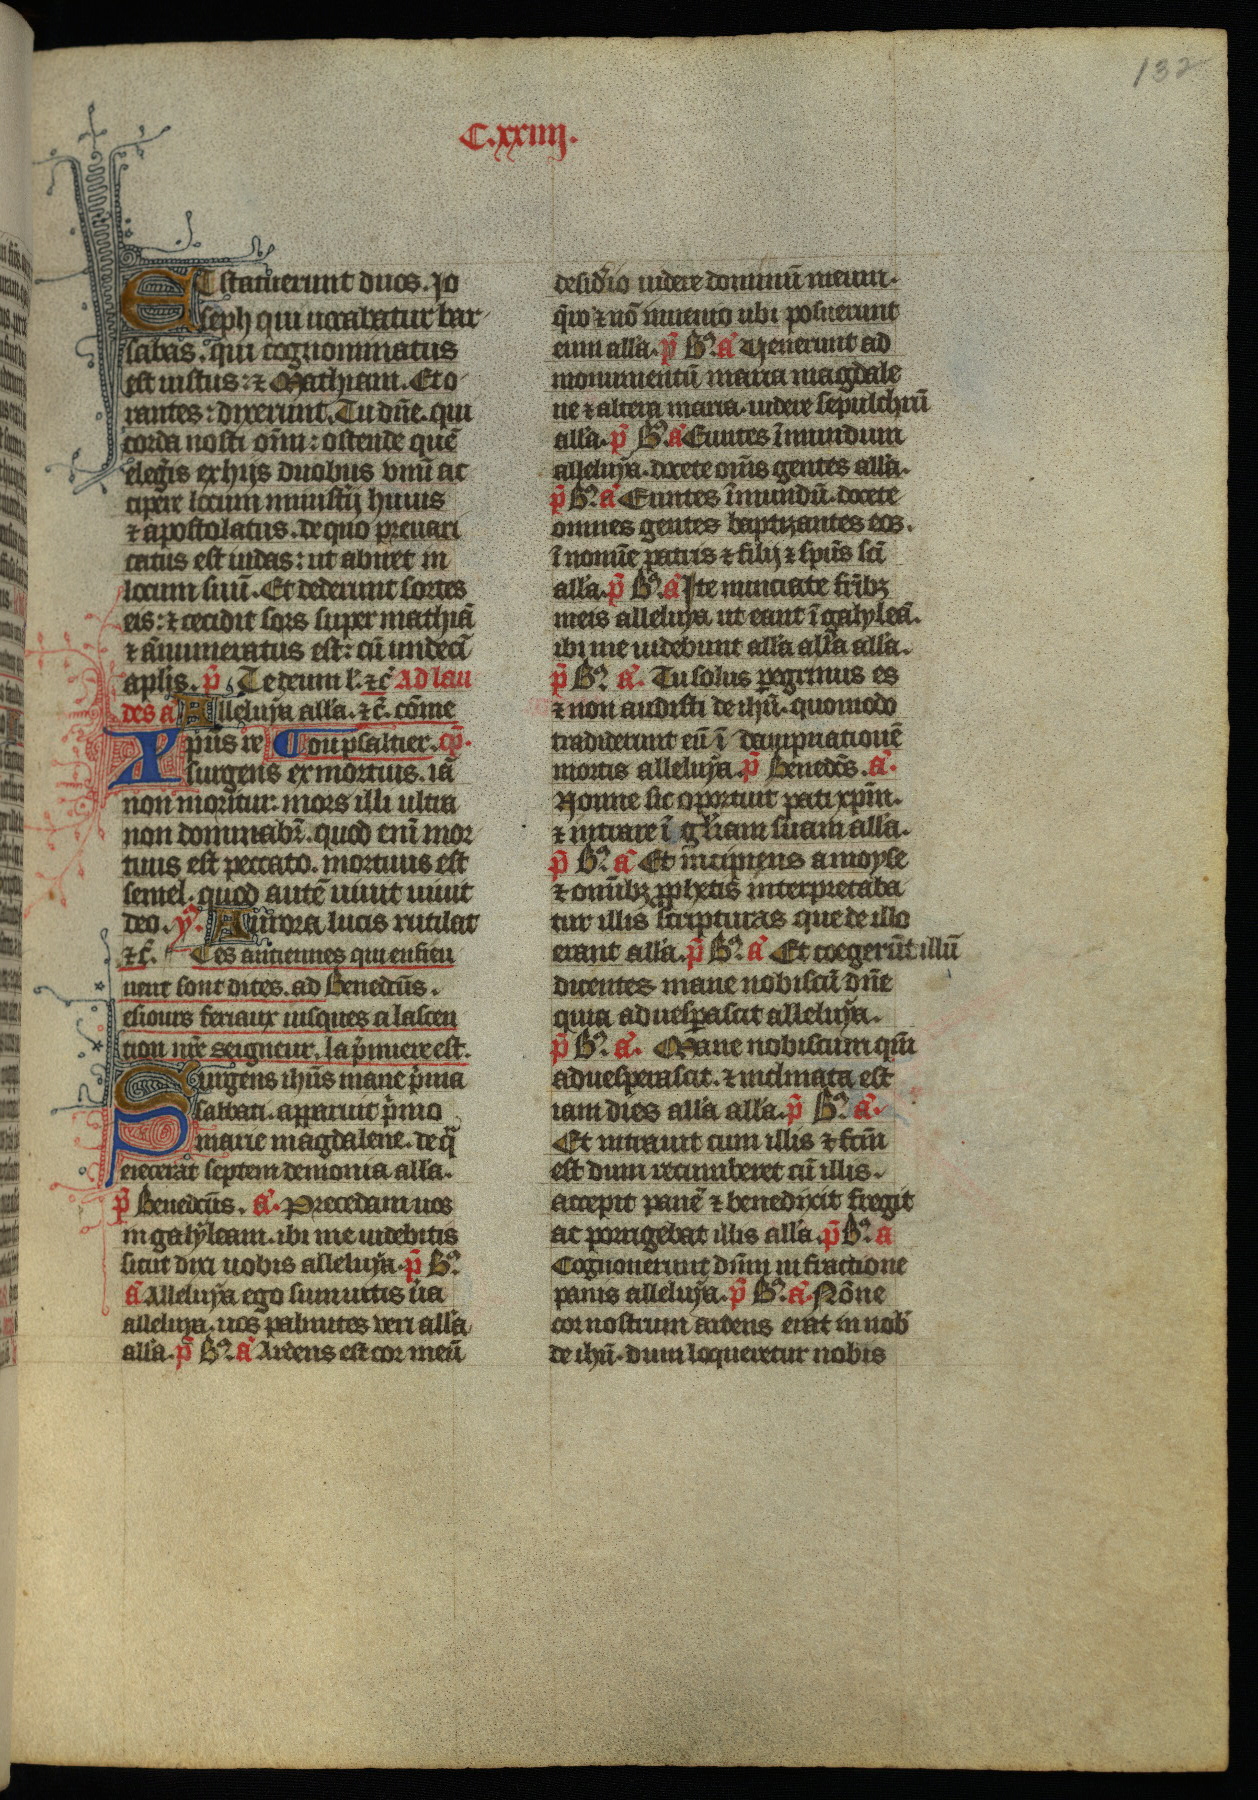 132
C.xxiiij.
Et statuerunt duos. Jo
seph qui uocabatur bar
sabas. qui cognominatus
est iustus: ⁊ Mathiam. Et o
rantes: dixerunt. Tu dñe. qui
corda nosti om̄iū: ostende quē
elegĩs ex hijs duobus vnū ac
cipere locum ministĩj huius
⁊ apostolatus. de quo preuari
catus est iudas: ut abiret in
locum suū. Et dederunt sortes
eis: ⁊ cecidit sors super mathiā
⁊ ānumeratus est: cū undecī
aplis. p̄ Te deum l. ⁊c̃ Ad lau
des a̾ Alleluya alla. ⁊c̃. cōme
ou psaltier. cp̄.
Xpūs re
surgens ex mortuis. iā
non moritur: mors illi ultra
non dominabr̃. quod enī mor
tuus est peccato. mortuus est
semel. quod autē uiuit uiuit
deo. y̾. Aurora lucis rutilat
⁊c̃. Ces antiennes qui ensieu
uent sont dites. ad Benedcūs.
es iours feriaux iusques a lascen
tion nr̄e seigneur. la p̄miere est.
Surgens ihūs mane p̄ma
sabbati. apparuit p̄mo
marie magdalene. de q̄
eiecerat septem demonia alla.
p̄ Benedcūs. a̾. Precedam uos
in galyleam. ibi me uidebitis
sicut dixi uobis alleluya. p̄ B̾.
a̾ Alleluya ego sum uitis u̾a
alleluya. uos palmites veri alla
alla. p̄ B̾. a̾ Ardens est cor meū
desid̾io uidere dominū meum.
q̄ro ⁊ nō inuenio ubi posuerunt
eum alla. p̄ B̾. a̾ Venerunt ad
monumentū maria magdale
ne ⁊ altera maria. uidere sepulchrū
alla. p̄ B̾. a̾ Euntes ī mundum
alleluya. docete om̄s gentes alla.
p̄ B̾. a̾ Euntes ī mundū. docete
omnes gentes baptizantes eos.
ī nomīe patris ⁊ filij ⁊ spūs scī
alla. p̄ B̾. a̾ Ite nunciate fr̄ibꝫ
meis alleluya ut eant ī galyleā.
ibi me uidebunt alla alla alla.
p̄ B̾. a̾. Tu solus pegrinus es
⁊ non audisti de ihū. quomodo
tradiderunt eū ī dampnationē
mortis alleluya. p̄ Benedcs̄. a̾.
Nonne sic oportuit pati xpm̄.
⁊ intrare ī gl̾iam suam alla.
p̄ B̾. a̾ Et incipiens a moyse
⁊ omībꝫ pphetis interpretaba
tur illis scripturas que de illo
erant alla. p̄ B̾. a̾ Et coegerūt illū
dicentes mane nobiscū dn̄e
quia aduesperascit alleluya.
p̄ B̾. a̾. Mane nobiscum qm̄
aduesperascit. ⁊ inclinata est
iam dies alla alla. p̄ B̾. a̾.
Et intrauit cum illis ⁊ fcm̄
est dum recumberet cū illis.
accepit panē ⁊ benedixit fregit
ac porrigebat illis alla. p̄ B̾. a̾
Cognouerunt dn̄m in fractione
panis alleluya. p̄ B̾. a̾. Nōne
cor nostrum ardens erat in nob̾
de ihū. dum loqueretur nobis